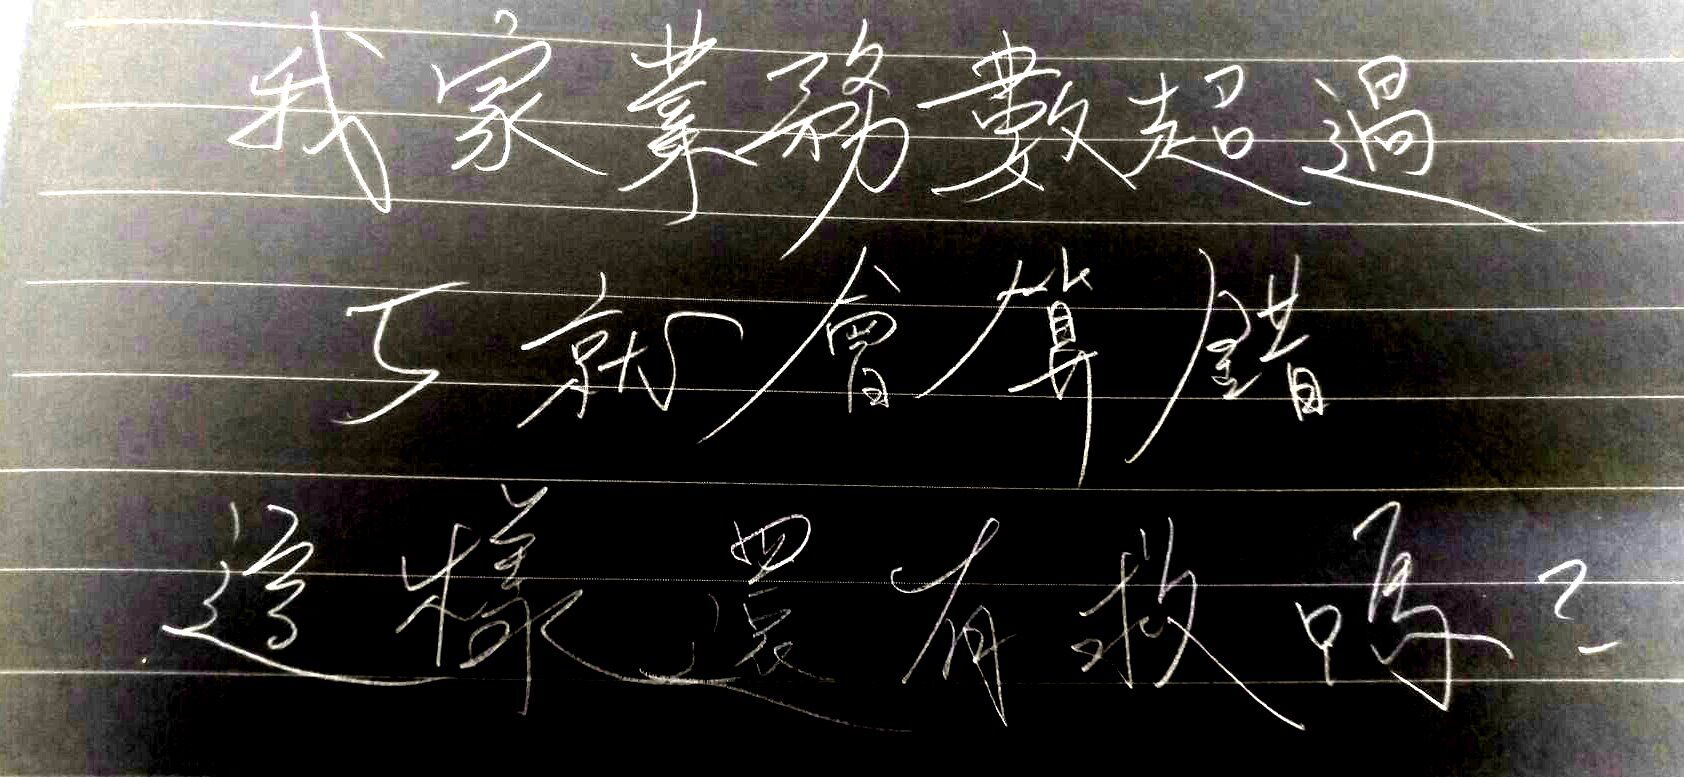 我家業務數超過
5就會算錯
這樣還有救嗎?